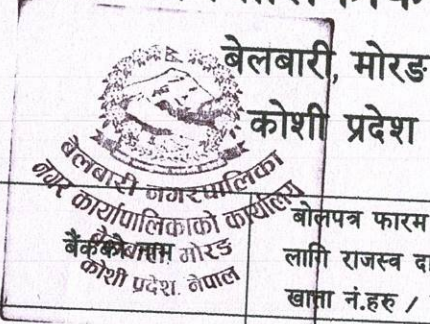 बेलबारी, मोरङ
कोशी प्रदेश
बेलबारी नगरपालिका
नगर कार्यपालिकाको कार्यालय
मोरङ
कोशी प्रदेश, नेपाल
बैंकको नाम
बोलपत्र फारम
लागि राजस्व
खाता नं.हरु /